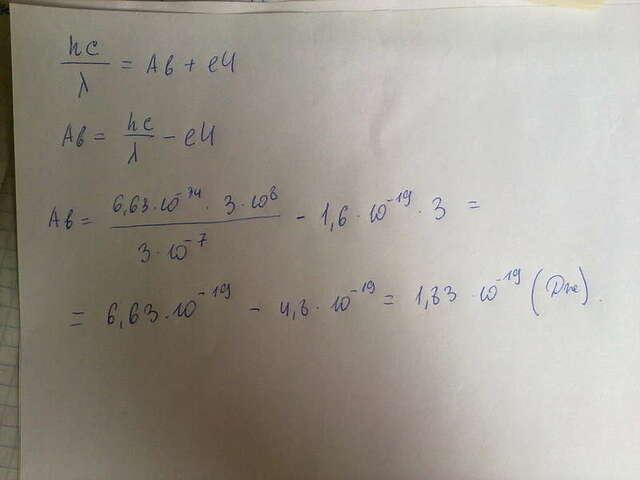 hc/λ = Aв + eU
Aв = hc/λ - eU
Aв = 6,63·10⁻³⁴ · 3·10⁸ / 3·10⁻⁷ - 1,6·10⁻¹⁹ · 3 =
= 6,63·10⁻¹⁹ - 4,8·10⁻¹⁹ = 1,83·10⁻¹⁹ (Дж).